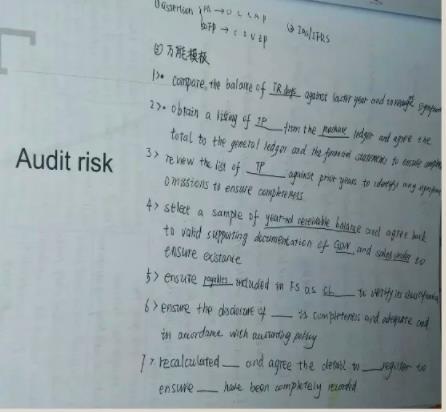 Audit risk
→ O C C A P
→ C E V R P
IAS/IFRS
万能模板
1> • compare the balance of TR days against last year and
2> • obtain a listing of TP from the purchase ledger and agree the
total to the general ledger and the financial statements to ensure
3> review the list of TP against prior years to identify any
omissions to ensure completeness
4> select a sample of year-end receivable balance and agree back
to valid supporting documentation of GDN and sales order to
ensure existance
5> ensure payables included in FS as to verify its classification
6> ensure the disclosure of ___ is completeness and adequate and
in accordance with accounting policy
7> recalculated ___ and agree the detail to ___ register to
ensure ___ have been completely recorded